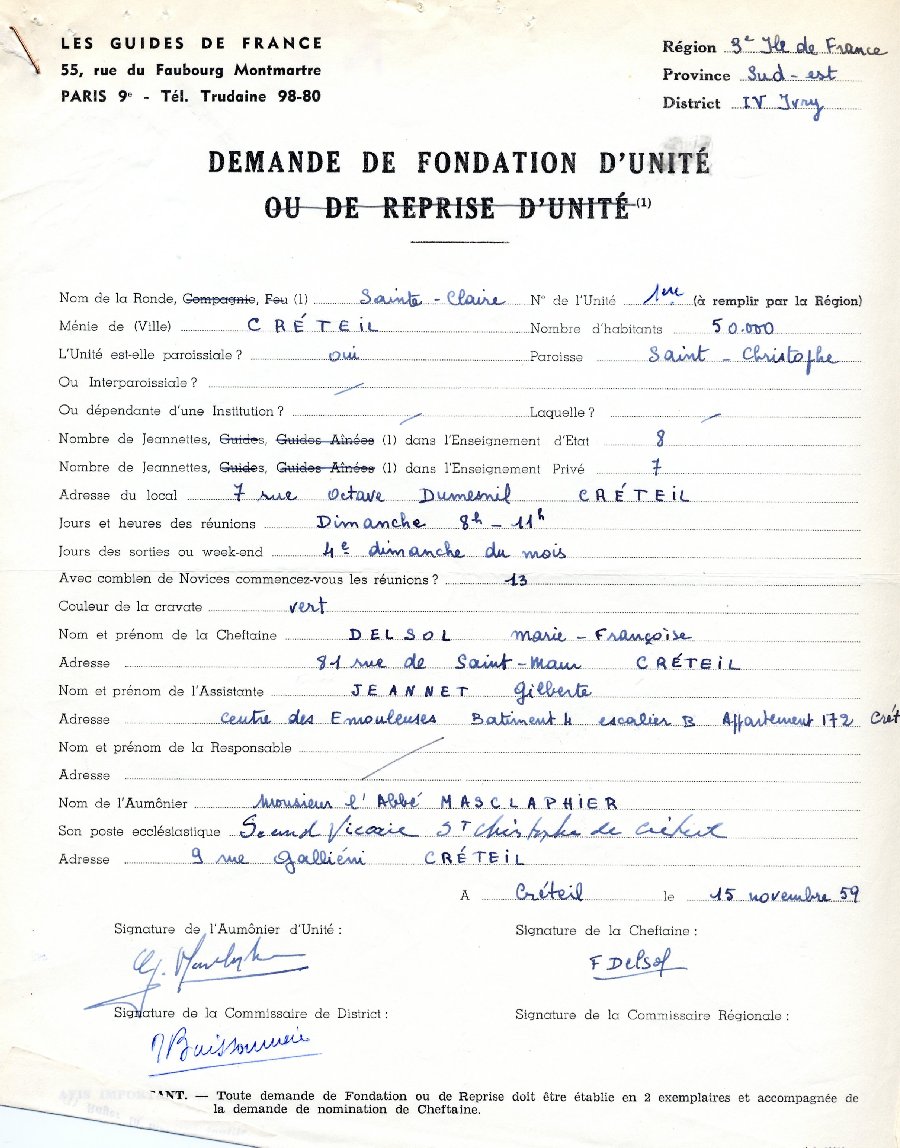 LES GUIDES DE FRANCE
55, rue du Faubourg Montmartre
PARIS 9e - Tél. Trudaine 98-80
Région 3e Ile de France
Province Sud-est
District IV Ivry
DEMANDE DE FONDATION D'UNITÉ
OU DE REPRISE D'UNITÉ (1)
Nom de la Ronde, Compagnie, Feu (1) Sainte-Claire N° de l'Unité 1ère (à remplir par la Région)
Ménie de (Ville) CRÉTEIL Nombre d'habitants 50.000
L'Unité est-elle paroissiale ? oui Paroisse Saint-Christophe
Ou Interparoissiale ?
Ou dépendante d'une Institution ? Laquelle ?
Nombre de Jeannettes, Guides, Guides Aînées (1) dans l'Enseignement d'Etat 8
Nombre de Jeannettes, Guides, Guides Aînées (1) dans l'Enseignement Privé 7
Adresse du local 7 rue Octave Dumesnil CRÉTEIL
Jours et heures des réunions Dimanche 8h - 11h
Jours des sorties ou week-end 4e dimanche du mois
Avec combien de Novices commencez-vous les réunions ? 13
Couleur de la cravate vert
Nom et prénom de la Cheftaine DELSOL Marie-Françoise
Adresse 81 rue de Saint-Maur CRÉTEIL
Nom et prénom de l'Assistante JEANNET Gilberte
Adresse Centre des Emouleuses Batiment 4 escalier B Appartement 172 Crét
Nom et prénom de la Responsable
Adresse
Nom de l'Aumônier Monsieur l'Abbé MASCLAPHIER
Son poste ecclésiastique Second Vicaire St Christophe de Créteil
Adresse 9 rue Galliéni CRÉTEIL
A Créteil le 15 novembre 59
Signature de l'Aumônier d'Unité :
Signature de la Cheftaine :
F Delsol
Signature de la Commissaire de District :
Signature de la Commissaire Régionale :
AVIS IMPORTANT. — Toute demande de Fondation ou de Reprise doit être établie en 2 exemplaires et accompagnée de
la demande de nomination de Cheftaine.